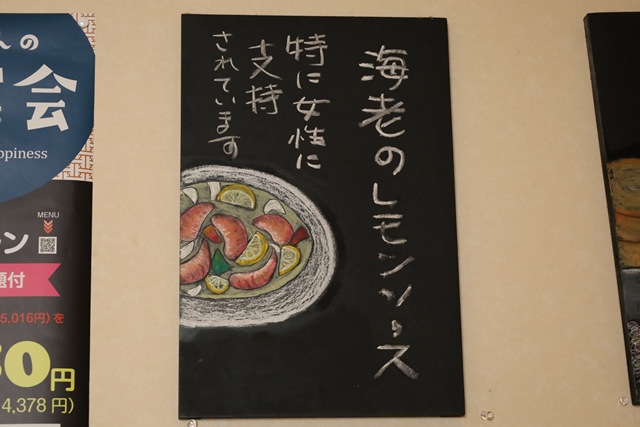 海老のレモンソース
特に女性に
支持
されています
んの
会
ppiness
MENU
ラン
題付
5,016円)を
80円
4,378円)